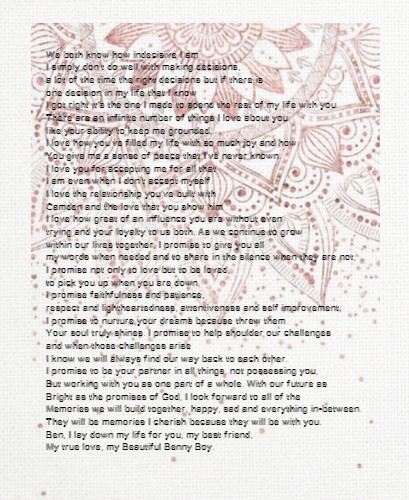 We both know how indecisive I am
I simply don't do well with making decisions,
a lot of the time the right decisions but if there is
one decision in my life that I know
I got right it's the one I made to spend the rest of my life with you.
There are an infinite number of things I love about you
like your ability to keep me grounded,
I love how you've filled my life with so much joy and how
You give me a sense of peace that I've never known
I love you for accepting me for all that
I am even when I don't accept myself
I love the relationship you've built with
Camden and the love that you show him
I love how great of an influence you are without even
trying and your loyalty to us both. As we continue to grow
within our lives together, I promise to give you all
my words when needed and to share in the silence when they are not,
I promise not only to love but to be loved,
to pick you up when you are down,
I promise faithfulness and patience,
respect and lightheartedness, attentiveness and self improvement,
I promise to nurture your dreams because threw them
Your soul truly shines. I promise to help shoulder our challenges
and when those challenges arise
I know we will always find our way back to each other.
I promise to be your partner in all things, not possessing you,
But working with you as one part of a whole. With our future as
Bright as the promises of God, I look forward to all of the
Memories we will build together, happy, sad and everything in-between.
They will be memories I cherish because they will be with you.
Ben, I lay down my life for you, my best friend,
My true love, my Beautiful Benny Boy.